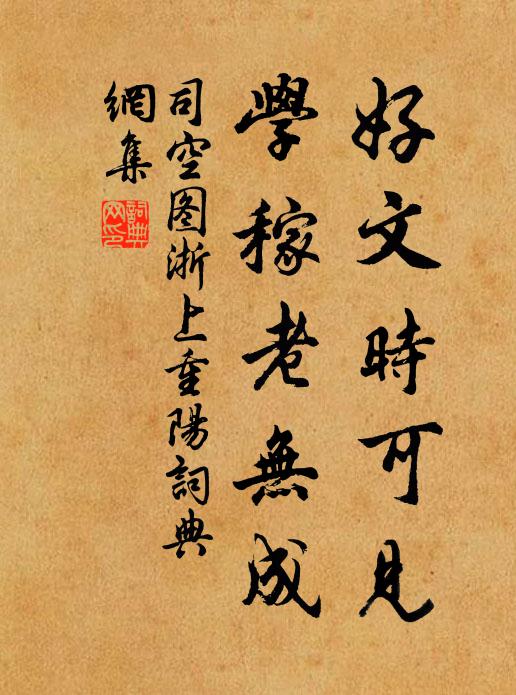 好文時可見
學稼老無成
司空图浙上重陽詞典
網集
詞典
网印